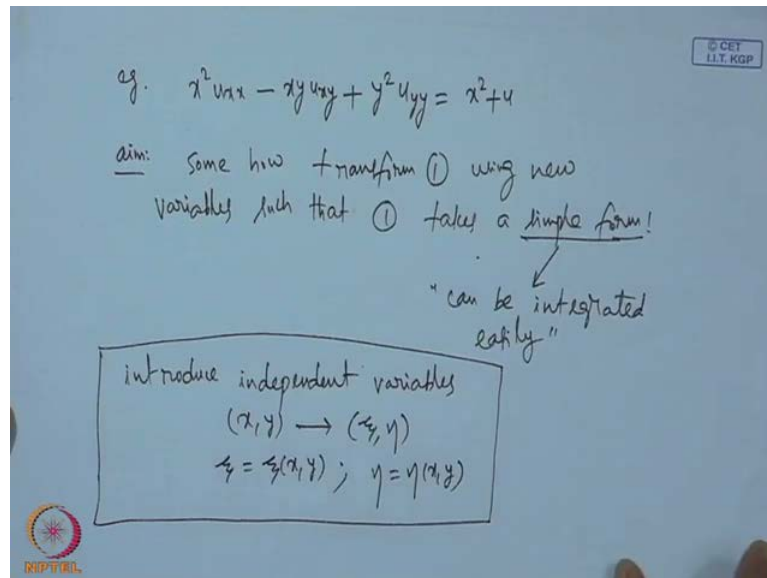 © CET
I.I.T. KGP
eg. x² uxx − xy uxy + y² uyy = x² + u
aim: Some how transform ① using new
variables such that ① takes a simple form!
"can be integrated
easily"
introduce independent variables
(x, y) → (ξ, η)
ξ = ξ(x, y) ; η = η(x, y)
NPTEL